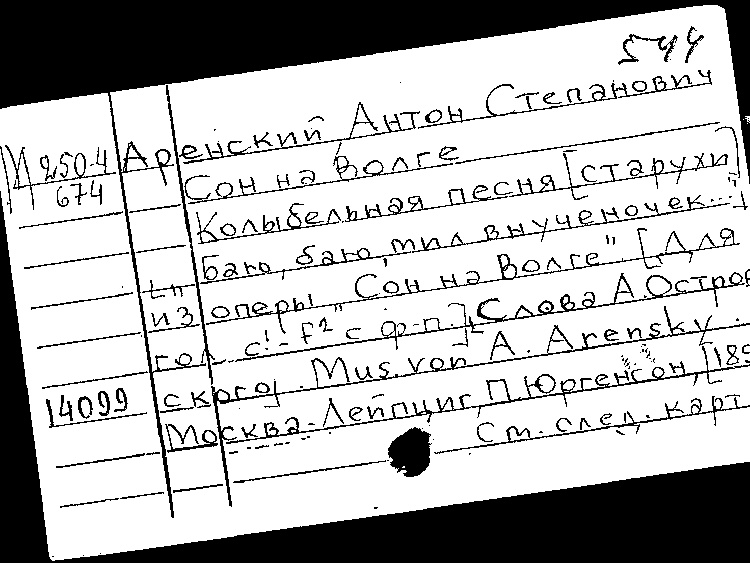 544
Аренский, Антон Степанович
М 250-4
674
Сон на Волге
Колыбельная песня [старухи]
"Баю, баю, мил внученочек..."]
из оперы "Сон на Волге" [Для
гол. c¹-f² с ф-п.] [Слова А. Остров
ского]. Mus. von A. Arensky.
14099
Москва-Лейпциг, П. Юргенсон, [189
См. след. карт